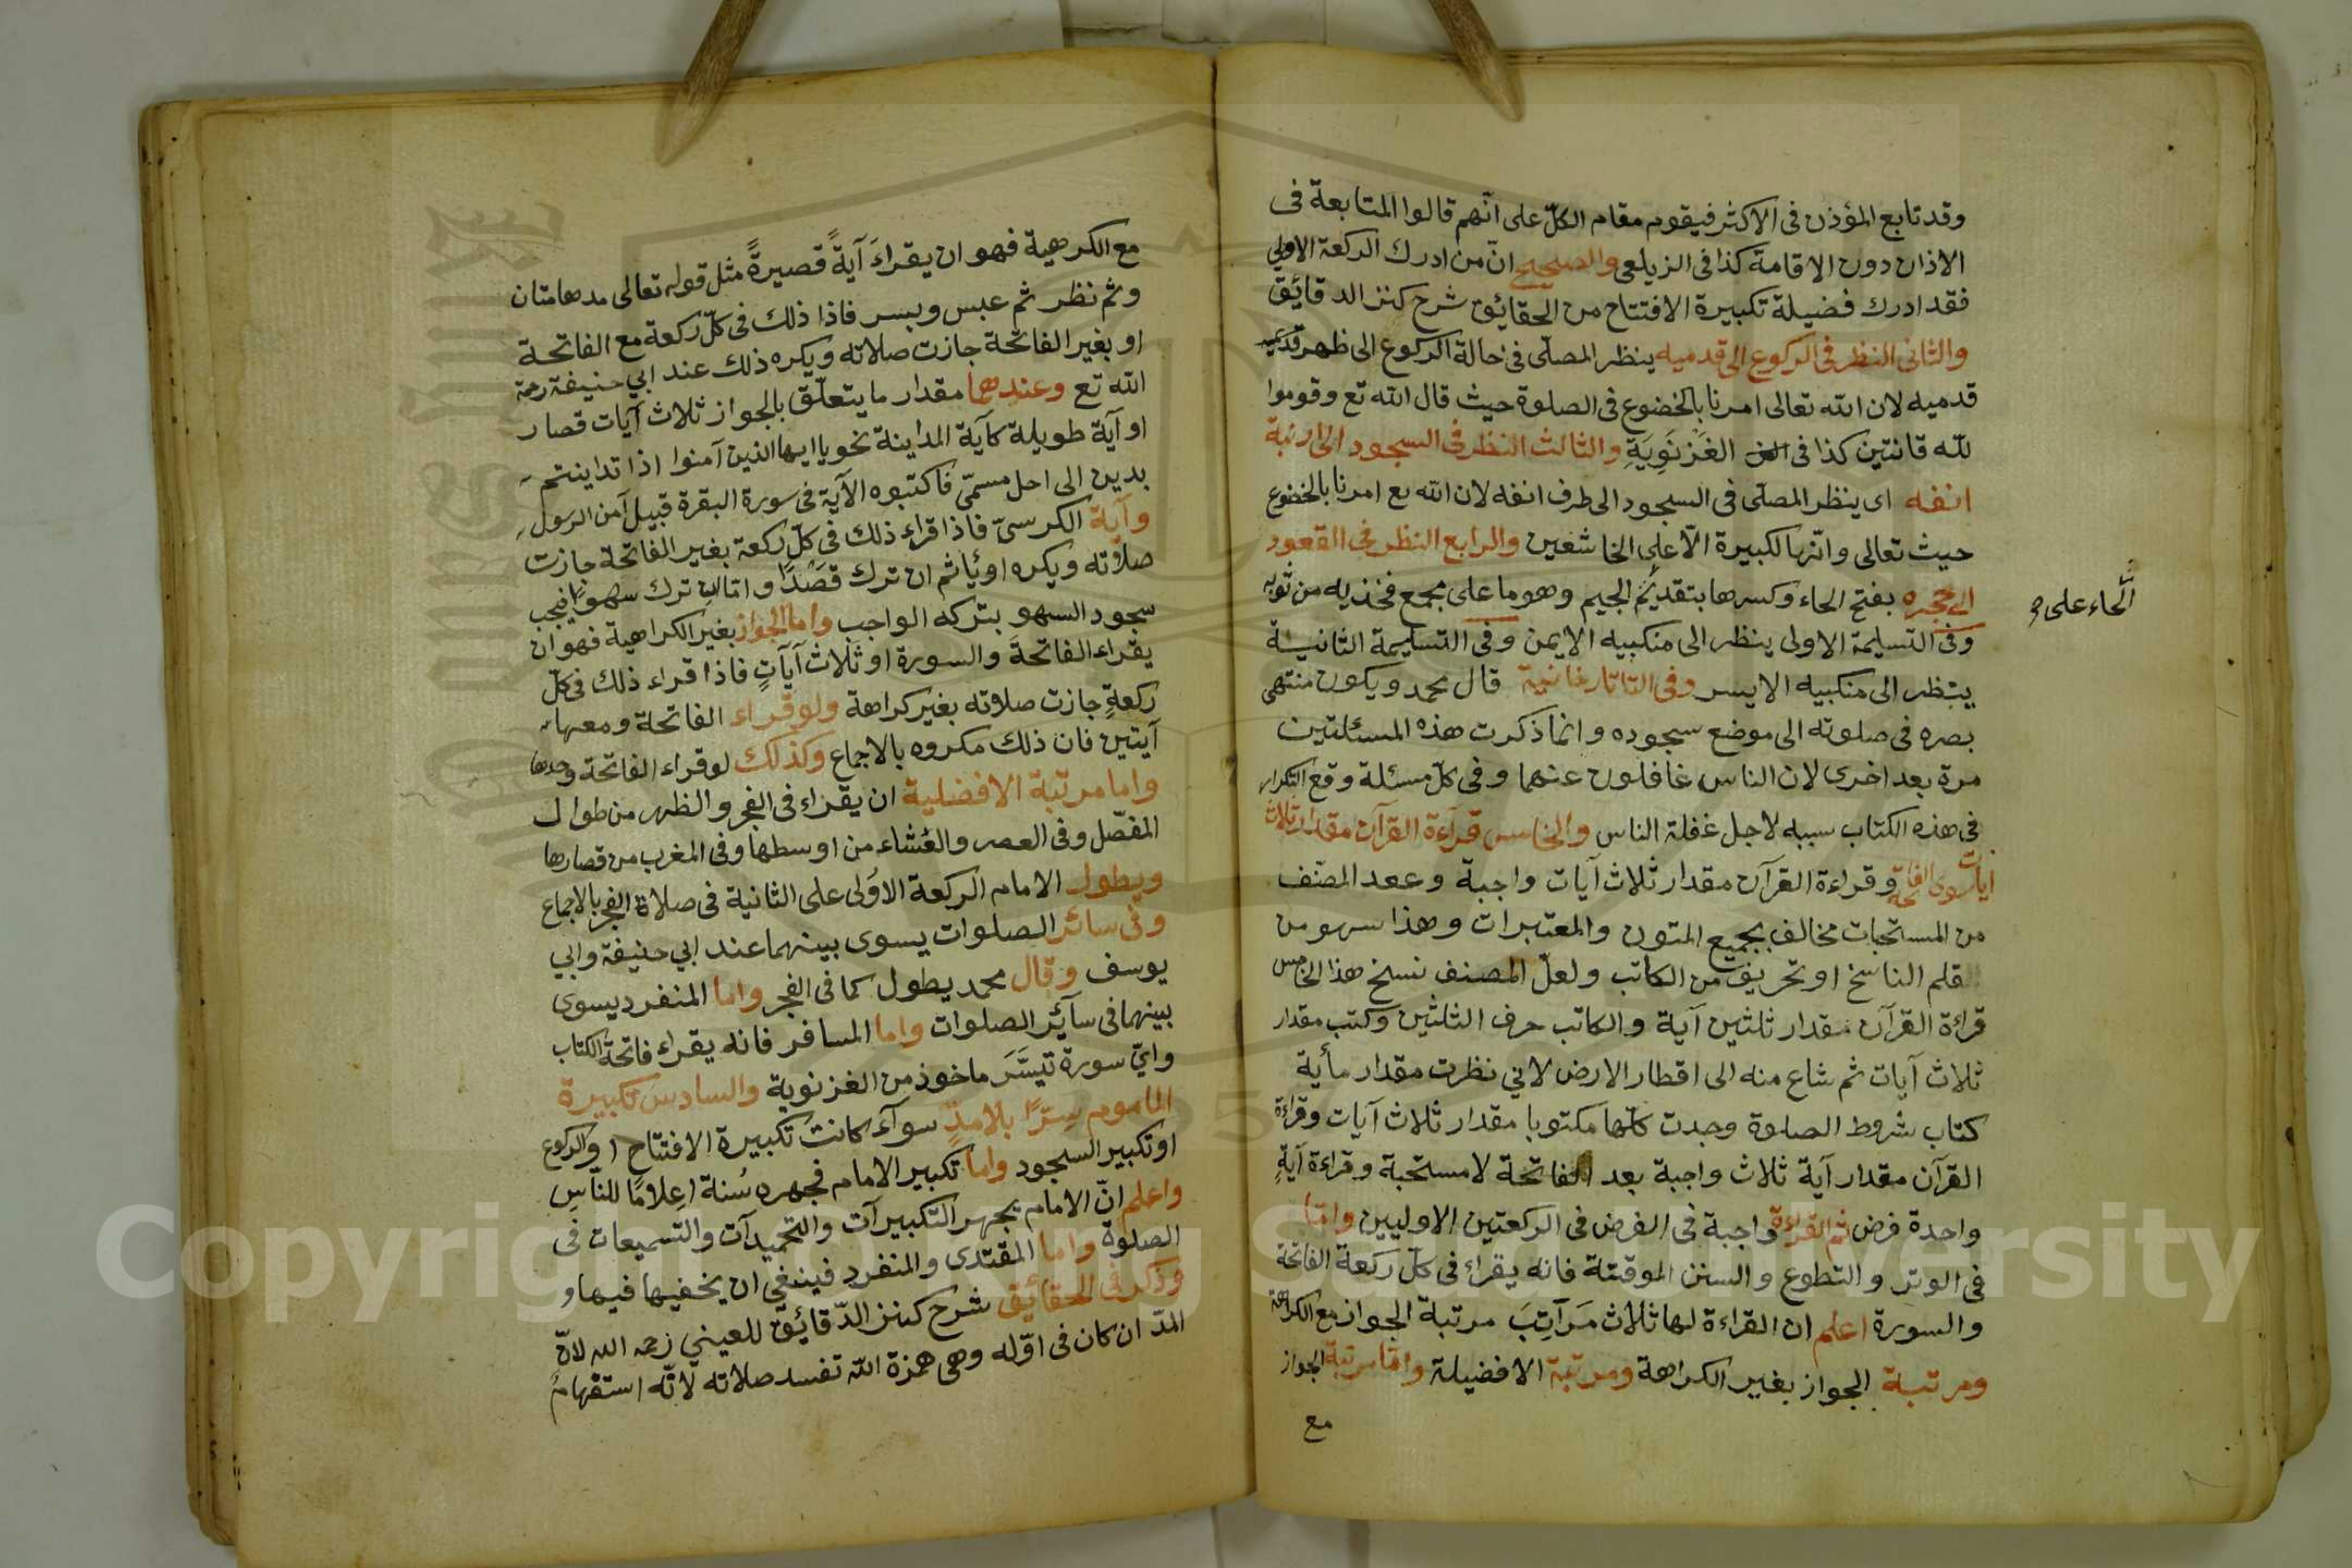 وقد تابع المؤذن فى الاكثر فيقوم مقام الكلّ على انّهم قالوا المتابعة فى
الاذان دون الاقامة كذا فى الزيلعى والصحيح انّ من ادرك الركعة الاولى
فقد ادرك فضيلة تكبيرة الافتتاح من الحقائق شرح كنز الدقائق
والثانى النظر فى الركوع الى قدميه ينظر المصلّى فى حالة الركوع الى ظهر قدميه
قدميه لان الله تعالى امرنا بالخضوع فى الصلوة حيث قال الله تع وقوموا
لله قانتين كذا فى الغَزْنَوِيَةِ والثالث النظر فى السجود الى ارنبة
انفه اى ينظر المصلّى فى السجود الى طرف انفه لان الله تع امرنا بالخضوع
حيث تعالى وانّها لكبيرة الّا على الخاشعين والرابع النظر فى القعود
الى حجره بفتح الحاء وكسرها بتقديم الجيم وهو ما على مجمع فخذيه من ثوبه
الحاء على
وفى التسليمة الاولى ينظر الى منكبيه الايمن وفى التسليمة الثانية
ينظر الى منكبيه الايسر وفى التاتارخانية قال محمد ويكون منتهى
بصره فى صلوته الى موضع سجوده وانما ذكرت هذه المسئلتين
مرة بعد اخرى لان الناس غافلون عنهما وفى كلّ مسئلة وقع التكرار
فى هذه الكتاب سببه لاجل غفلة الناس والخامس قراءة القرآن مقدار ثلاث
ايات سوى الفاتحة وقراءة القرآن مقدار ثلاث آيات واجبة وععد المصنف
من المستحبات مخالف بجميع المتون والمعتبرات وهذا سهو من
قلم الناسخ او تحريف من الكاتب ولعلّ المصنف نسخ هذا الخامس
قراءة القرآن مقدار ثلثين آية والكاتب حرف الثلثين وكتب مقدار
ثلاث آيات ثم شاع منه الى اقطار الارض لاني نظرت مقدار مأية
كتاب شروط الصلوة وجدت كلّها مكتوبا مقدار ثلاث آيات وقراءة
القرآن مقدار آية ثلاث واجبة بعد الفاتحة لا مستحبة وقراءة آيةٍ
واحدة فرض ثم القراءة واجبة فى الفرض فى الركعتين الاوليين وامّا
فى الوتر والتطوع والسنن الموقتة فانه يقراء فى كلّ ركعة الفاتحة
والسورة اعلم ان القراءة لها ثلاث مَرَاتِبَ مرتبة الجواز مع الكراهة
ومرتبة الجواز بغير الكراهة ومرتبة الافضيلة وامّا مرتبة الجواز
مع
مع الكرهية فهو ان يقراءَ آيةً قصيرةً مثل قوله تعالى مدهامتان
وثم نظر ثم عبس وبسر فاذا ذلك فى كلّ ركعة مع الفاتحة
او بغير الفاتحة جازت صلاته ويكره ذلك عند ابي حنيفة رحمة
الله تع وعندهما مقدار ما يتعلّق بالجواز ثلاث آيات قصار
او آية طويلة كآية المداينة نحو يا ايها الذين آمنوا اذا تداينتم
بدين الى اجل مسمّى فاكتبوه الآية فى سورة البقرة قبيل آمن الرسول
وآية الكرسىّ فاذا قراء ذلك فى كلّ ركعة بغير الفاتحة جازت
صلاته ويكره او يأثم ان ترك قصْدًا وامّا ان ترك سهوًا فيجب
سجود السهو بتركه الواجب واما الجواز بغير الكراهية فهو ان
يقراء الفاتحةَ والسورة او ثلاث آياتٍ فاذا قراء ذلك فى كلّ
ركعةٍ جازت صلاته بغير كراهة ولو قراء الفاتحة ومعها
آيتين فان ذلك مكروه بالاجماع وكذلك لو قراء الفاتحة وحدها
واما مرتبة الافضلية ان يقراء فى الفجر والظهر من طوال
المفصّل وفى العصر والعشاء من اوسطها وفى المغرب من قصارها
ويطول الامام الركعة الاولى على الثانية فى صلاة الفجر بالاجماع
وفى سائر الصلوات يسوى بينهما عند ابي حنيفة وابي
يوسف وقال محمد يطول كما فى الفجر واما المنفرد يسوى
بينهما فى سائر الصلوات واما المسافر فانه يقراء فاتحة الكتاب
واىّ سورة تيسّرَ ماخوذ من الغزنوية والسادس تكبيرة
الماموم سِرًّا بلامدٍّ سوآء كانت تكبيرة الافتتاح او الركوع
او تكبير السجود واما تكبير الامام فجهره سُنة اعِلامًا للنّاسِ
واعلم انّ الامام يجهر التكبيرآت والتحميدآت والتسميعات فى
الصلوة واما المقتدى والمنفرد فينبغى ان يخفيها فيها و
وذكر فى الحقائق شرح كنز الدّقائق للعيني رحمه الله لانّ
المدّ ان كان فى اوّله وهى همزة الله تفسد صلاته لانّه استفهامٌ
Copyright © King Saud University